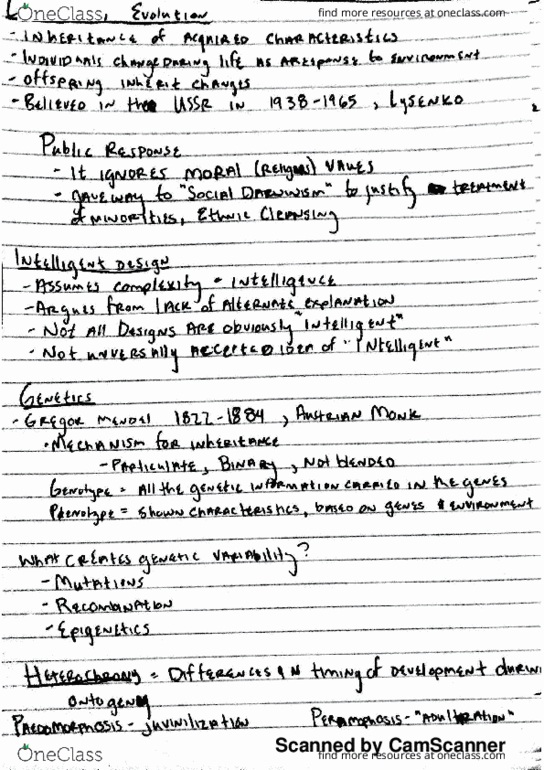 OneClass
find more resources at oneclass.com
Evolution
- Inheritance of Acquired Characteristics
- Individuals change during life as a response to environment
- Offspring inherit changes
- Believed in the USSR in 1938-1965, Lysenko
Public Response
- It ignores moral (religous) values
- gave way to "Social Darwinism" to justify treatment
of minorities, Ethnic Cleansing
Intelligent Design
- Assumes complexity = intelligence
- Argues from lack of alternate explanation
- Not all Designs are obviously "intelligent"
- Not unversally accepted idea of "Intelligent"
Genetics
- Gregor Mendel 1822-1884, Austrian Monk
· Mechanism for inheritance
- Particulate, Binary, Not blended
Genotype = All the genetic information carried in the genes
Phenotype = shown characteristics, based on genes & environment
What creates genetic variability?
- Mutations
- Recombination
- Epigenetics
Heterochrony = Differences in timing of development durin
ontogeny
Paedomorphosis - juvinilization Peramophosis - "Adultration"
Scanned by CamScanner
OneClass
find more resources at oneclass.com